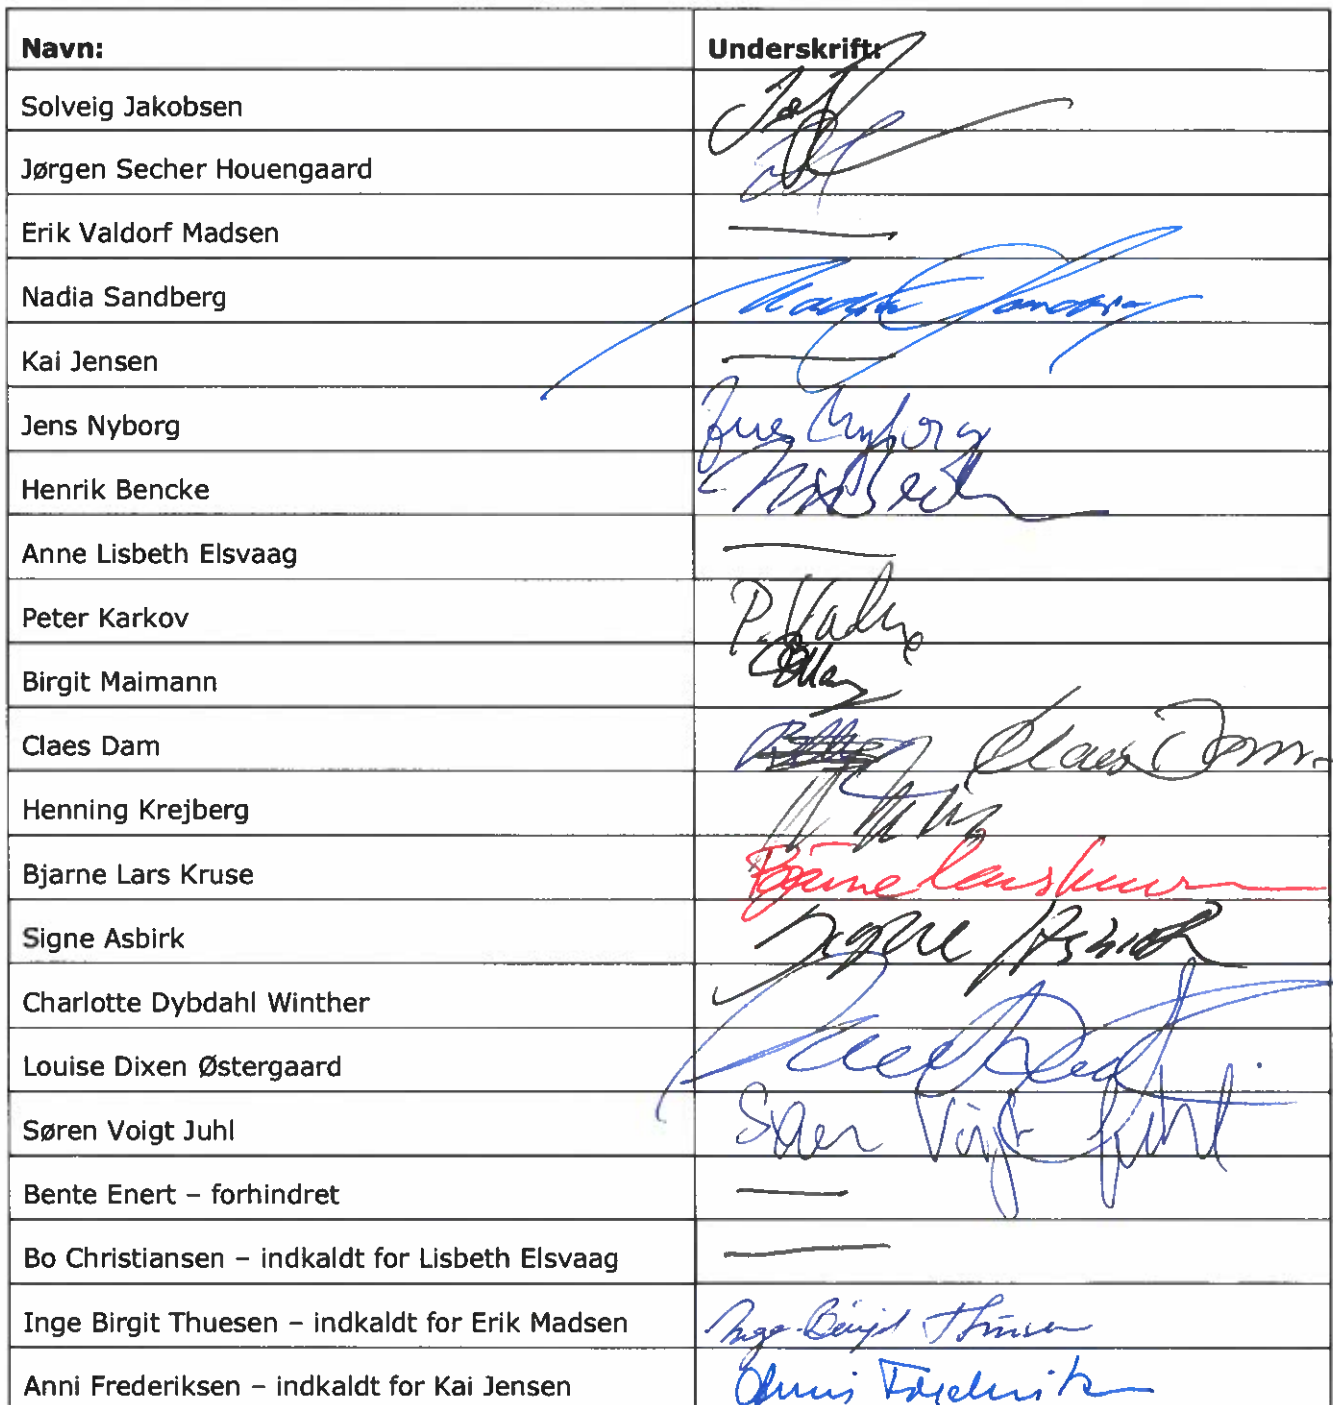 Navn: Underskrift:
Solveig Jakobsen
Jørgen Secher Houengaard
Erik Valdorf Madsen
Nadia Sandberg Nadia Sandberg
Kai Jensen
Jens Nyborg Jens Nyborg
Henrik Bencke
Anne Lisbeth Elsvaag
Peter Karkov
Birgit Maimann
Claes Dam Claes Dam
Henning Krejberg
Bjarne Lars Kruse Bjarne Lars Kruse
Signe Asbirk Signe Asbirk
Charlotte Dybdahl Winther
Louise Dixen Østergaard
Søren Voigt Juhl Søren Voigt Juhl
Bente Enert – forhindret
Bo Christiansen – indkaldt for Lisbeth Elsvaag
Inge Birgit Thuesen – indkaldt for Erik Madsen Inge-Birgit Thuesen
Anni Frederiksen – indkaldt for Kai Jensen Anni Frederiksen